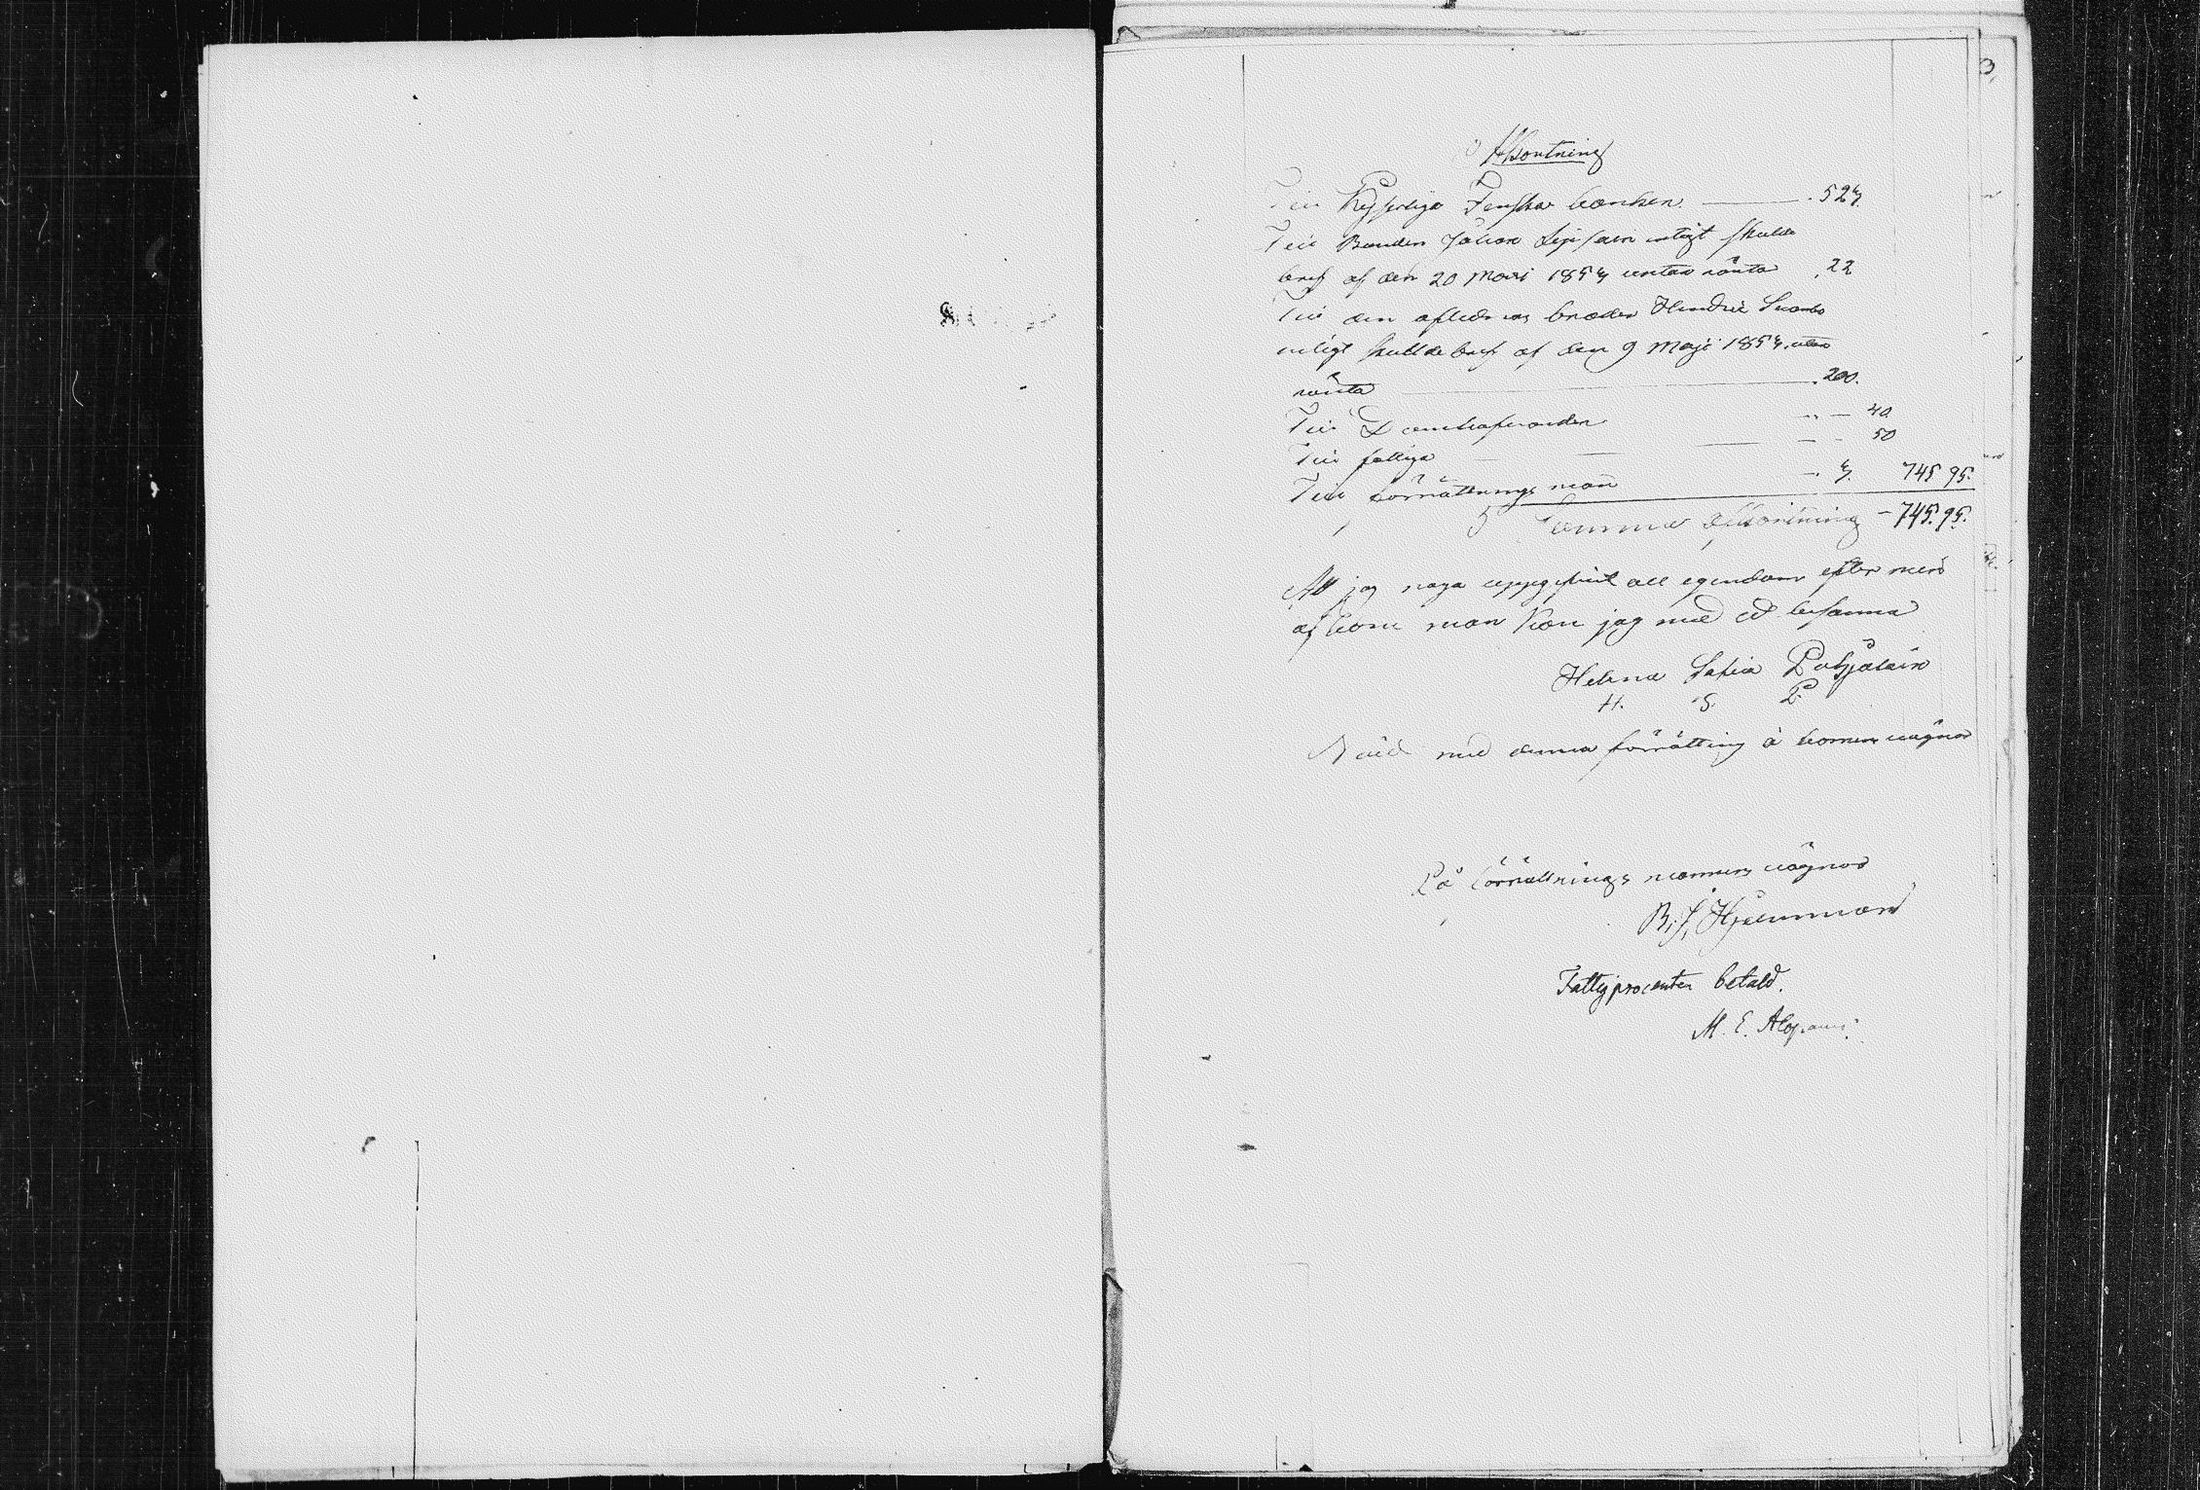 Afkortning
Till Kejserliga Finska banken 524.
Till Bonden Johan enligt skulde
bref af den 20 Mars 1854 utan ränta 22
Till den aflednas broder Hendric
enligt skulldebref af den 9 Maji 1854 utan
ränta 200.
Till 40
Till fattiga 50
Till förrättnings man 4. 745 95.
Summa afkortning - 745. 95.
Att jag noga uppgifvit all egendom efter min
af man kan jag med ed besanna
Helena Sofia
H. S. P.
Nöid med denna förrätting å vägnar
På förrättnings mannens vägnar
B. J. Hjelmman
Fattigprocenten betald.
M. E.